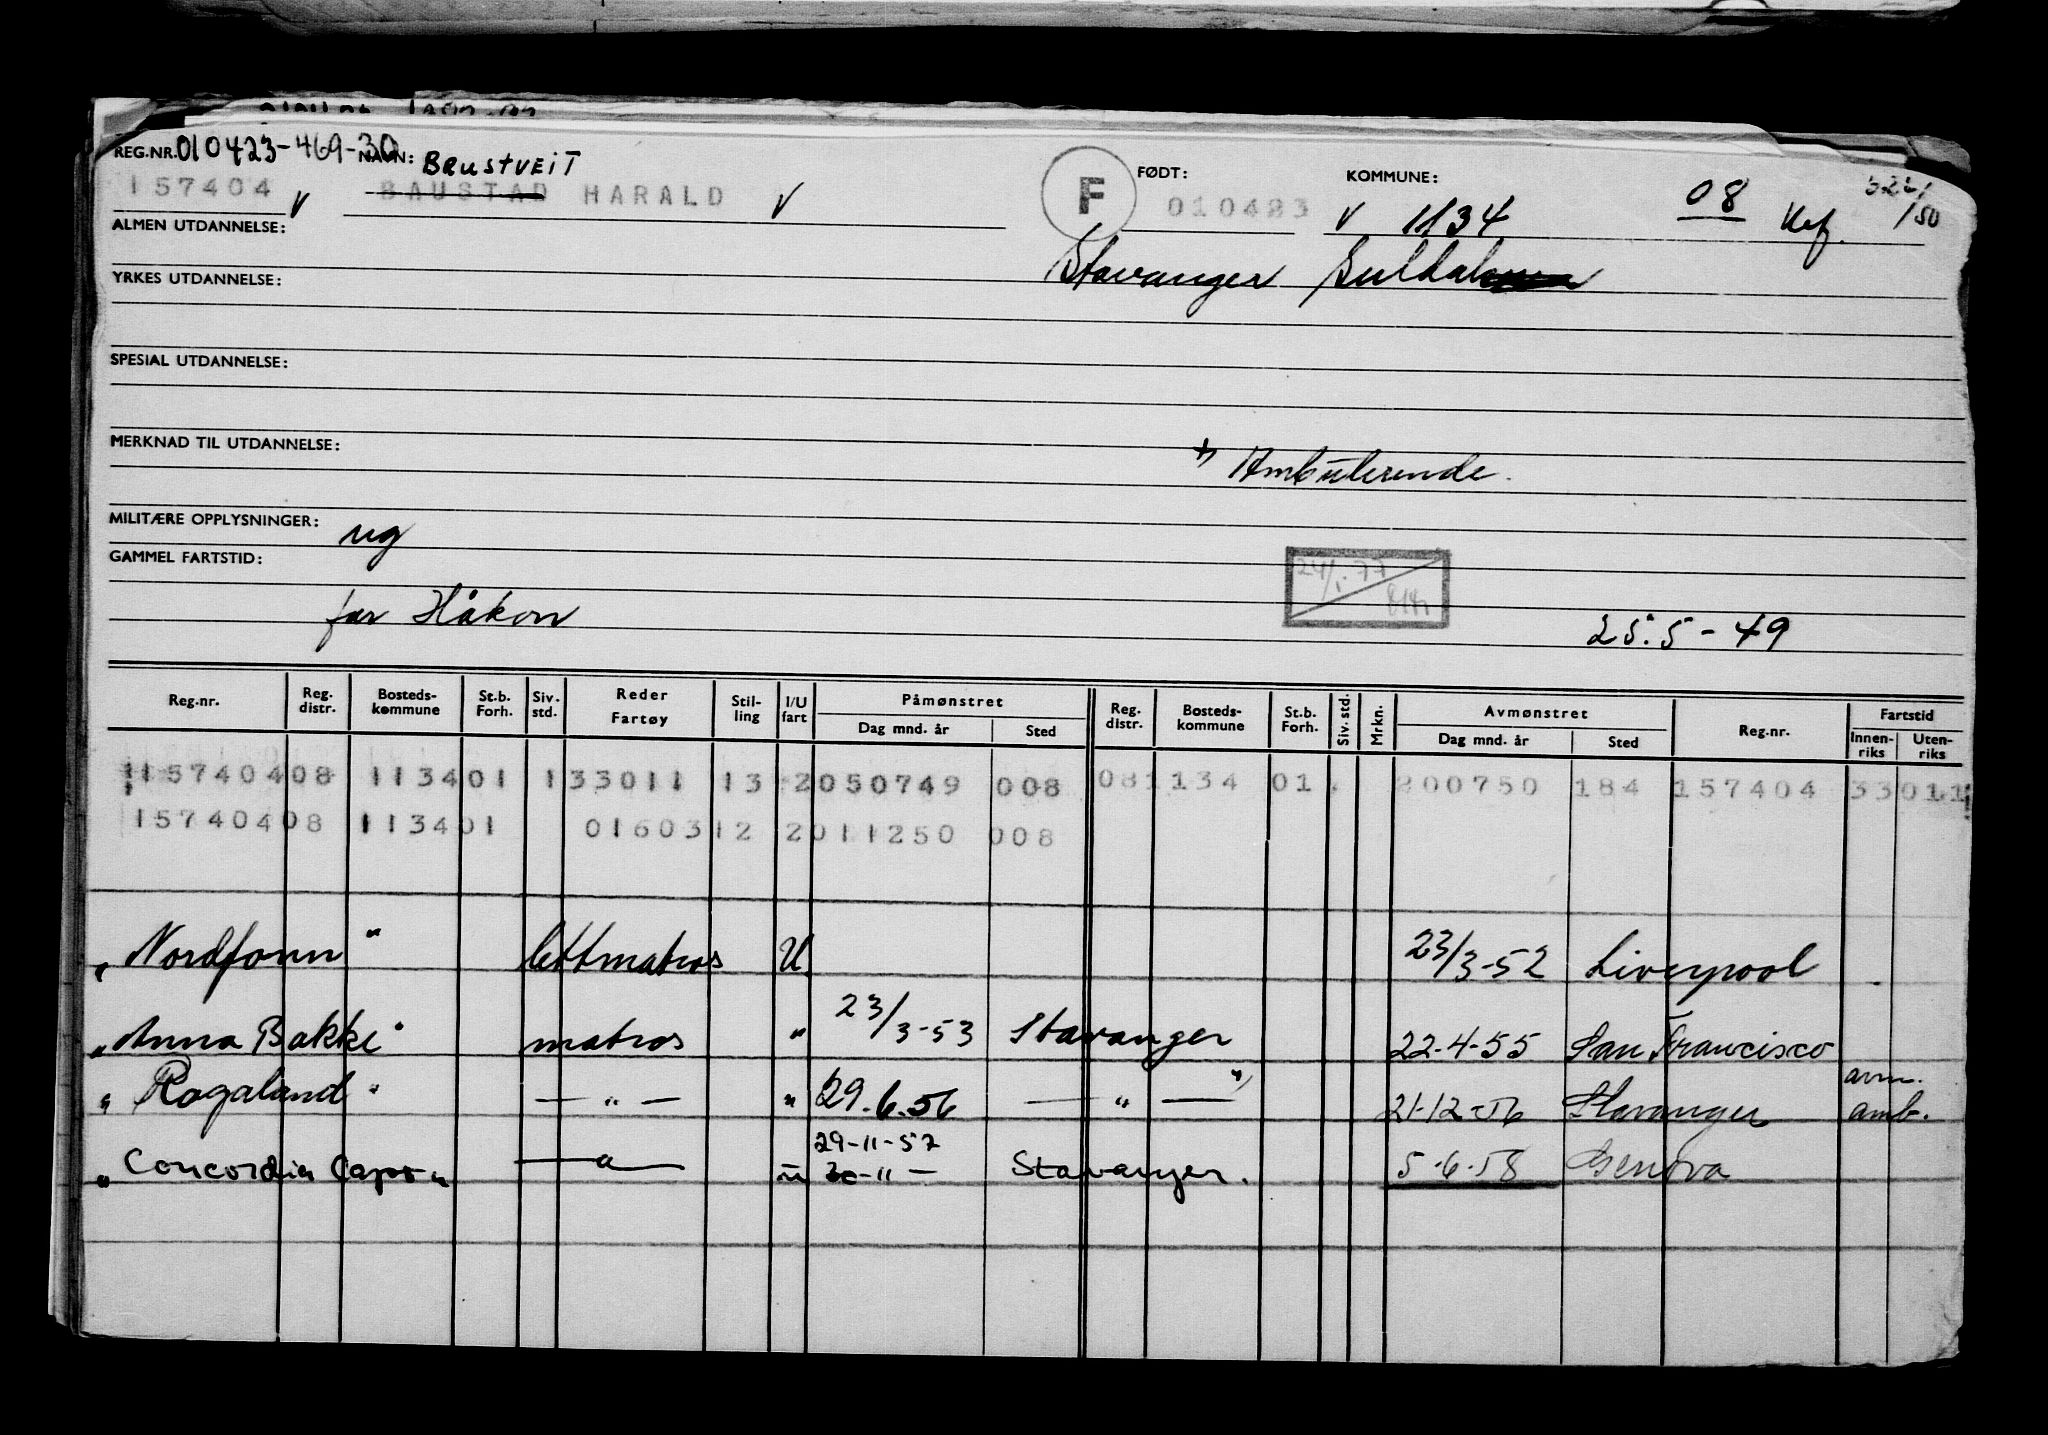 REG.NR. 010423-469-30 NAVN: BAUSTVEIT
157404 V BAUSTAD HARALD V F FØDT: 010423 KOMMUNE: V 1134 08
ALMEN UTDANNELSE:
Stavanger Suldal
YRKES UTDANNELSE:
SPESIAL UTDANNELSE:
MERKNAD TIL UTDANNELSE:
Ambulerende.
MILITÆRE OPPLYSNINGER: ug
GAMMEL FARTSTID:
24/1.77
far Håkon 25.5-49
Reg.nr. Reg. distr. Bosteds-kommune St.b. Forh. Siv. std. Reder Fartøy Stil-ling I/U fart Påmønstret Dag mnd. år Sted Reg. distr. Bosteds-kommune St.b. Forh. Siv. std. Mrkn. Avmønstret Dag mnd. år Sted Reg.nr. Fartstid Innen-riks Uten-riks
157404 08 1134 01 1 33011 13 2 050749 008 08 1134 01 200750 184 157404 33011
157404 08 1134 01 01603 12 2 011250 008
"Nordfonn" lettmatros U 23/3-52 Liverpool
"Anna Bakke" matros " 23/3-53 Stavanger 22-4-55 San Francisco
"Rogaland" — " — " 29.6.56 — " — 21-12-56 Stavanger avm. amb.
"Concordia Capo" — " — u 29-11-57 30-11 — Stavanger. 5-6-58 Genova